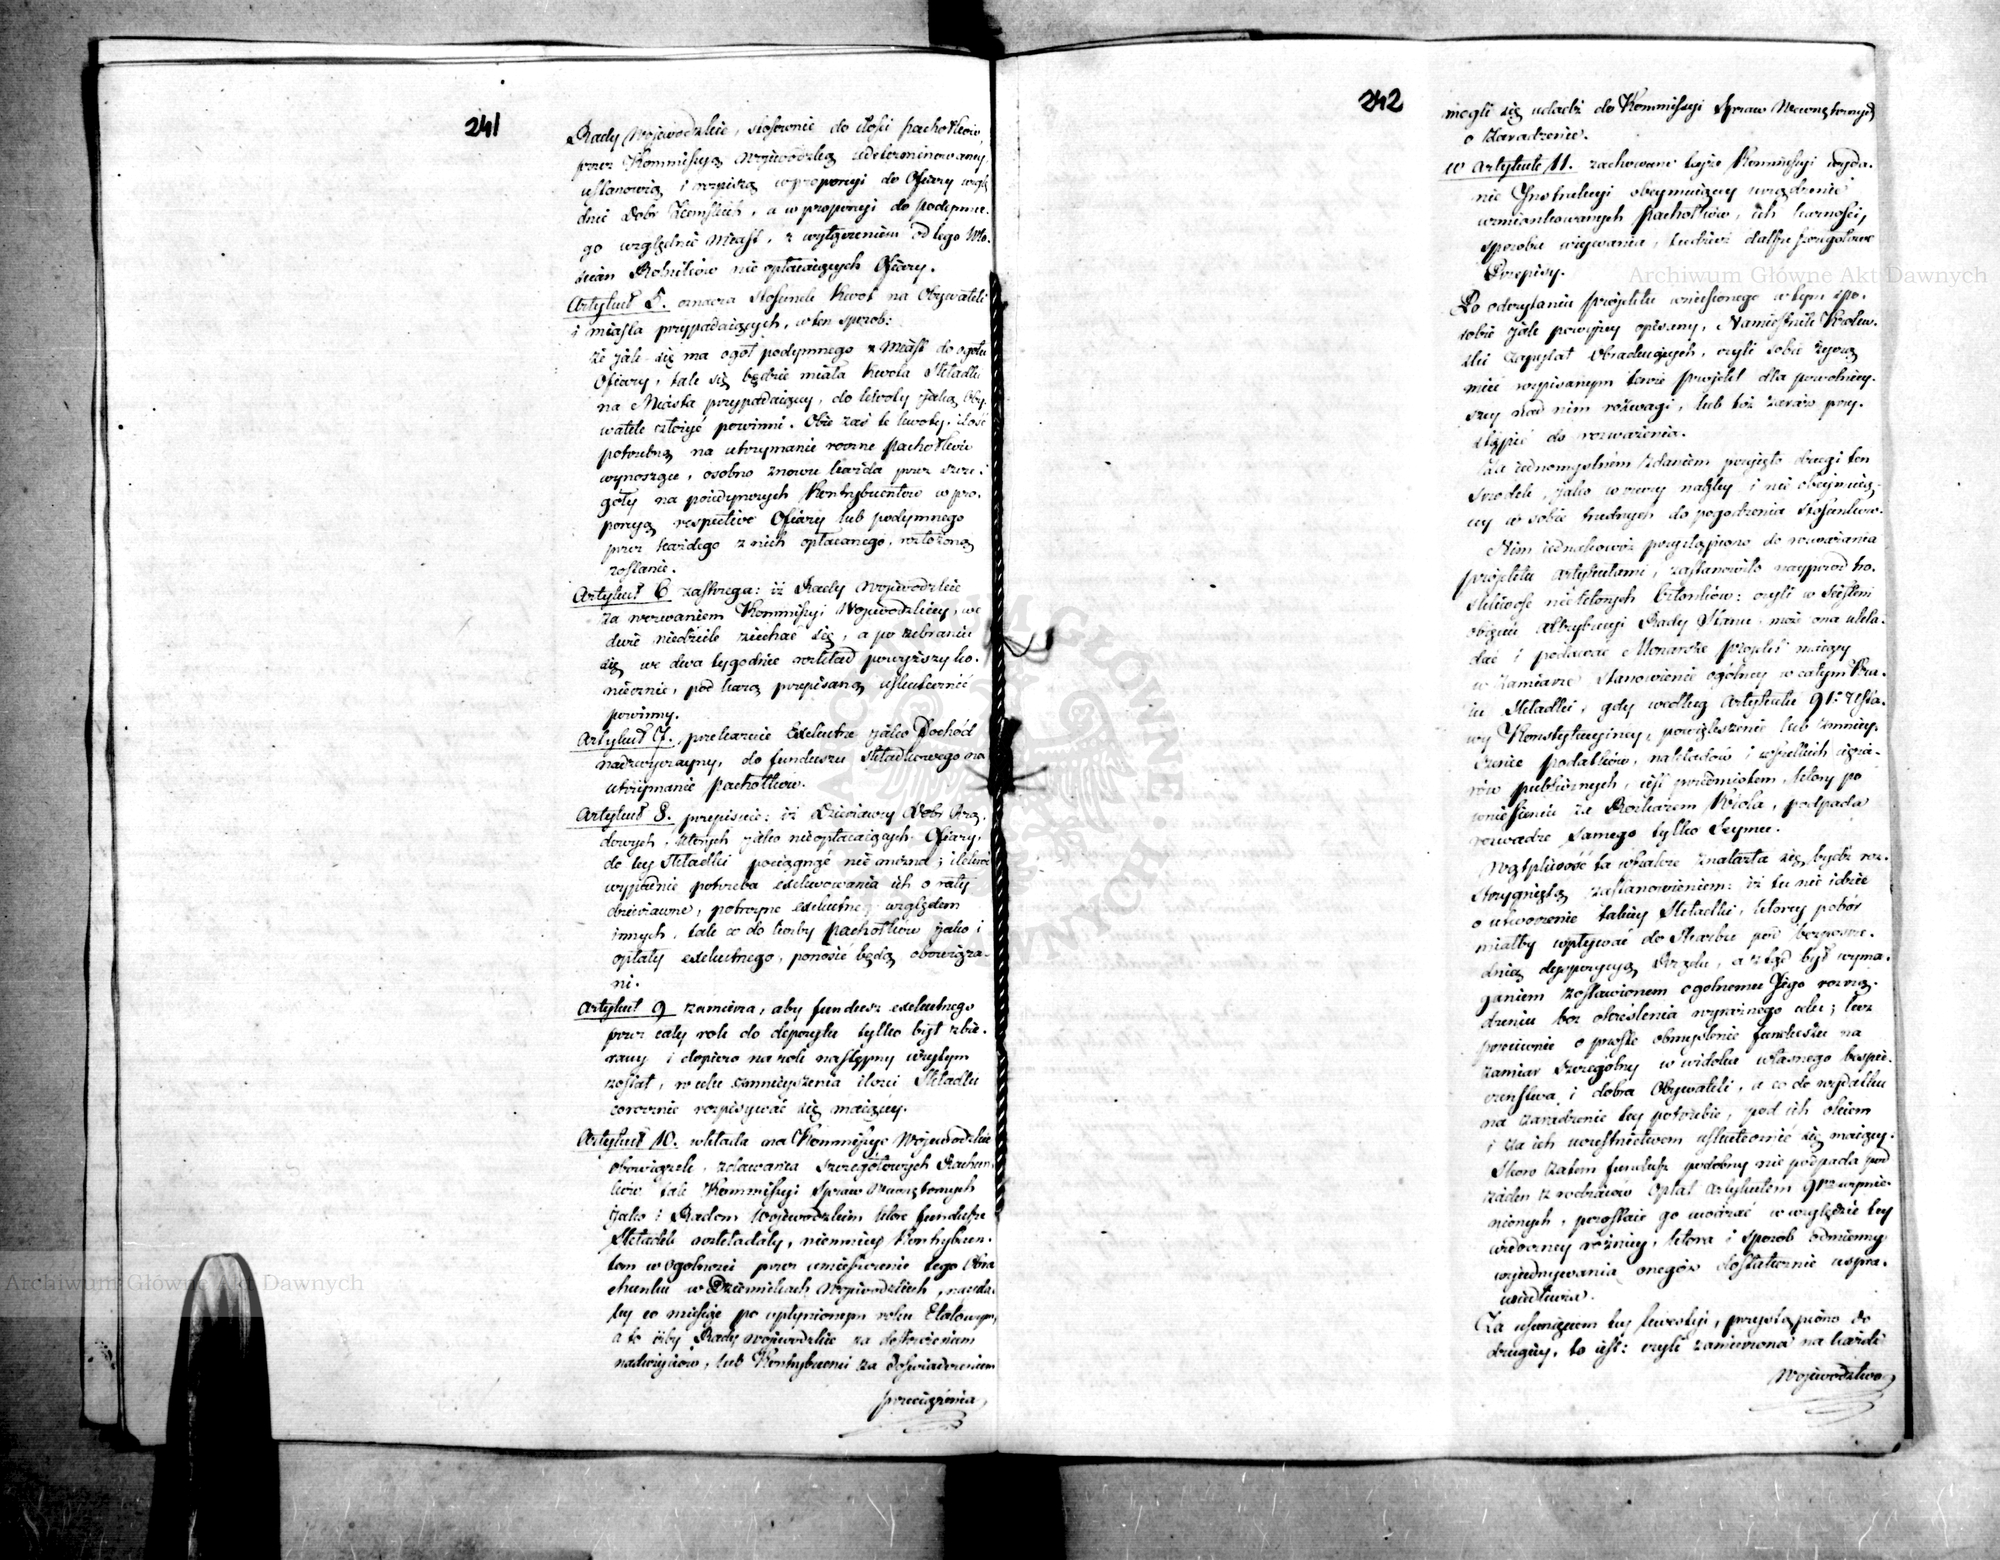 241
Rady Wojewodzkie, stosownie do ilości pachołków,
przez Kommissyą Wojewodzką zdeterminowaney
ustanowią i rozpiszą w proporcyi do Ofiary wzglę
dnie Dobr Ziemskich, a w proporcyi do podymne.
go względnie Miast, z wyłączeniem od tego Wło.
ścian Rolników nie opłacaiących Ofiary.
Artykuł 5. oznacza stosunek kwot na Obywateli
i miasta przypadaiących, w ten sposob:
że jak się ma ogoł podymnego z Miast do ogołu
Ofiary, tak się będzie miała kwota Składki
na Miasta przypadaiący, do kwoty jaką Oby.
watele złożyć powinni. Obie zaś te kwoty, ilość
potrzebną na utrzymanie roczne pachołków
wynoszące, osobno znowu każda przez szcze:
goły na poiedynczych Kontrybuentów w pro.
porcyą respective Ofiary lub podymnego
przez każdego z nich opłacanego, rozłożoną
zostanie.
Artykuł 6 zastrzega: iż Rady Wojewodzkie
za wezwaniem Kommissyi Wojewodzkiey, we
dwie niedziele ziechać się, a po zebraniu
się we dwa tygodnie rozkład powyższy ko.
niecznie, pod karą przepisaną uskutecznić
powinny.
Artykuł 7. przekazuie Exekutne jako Dochód
nadzwyczayny, do funduszu Składkowego na
utrzymanie pachołków.
Artykuł 8. przepisuie: iż Dzierżawcy Dobr Rzą.
dowych, których jako nieopłacaiących Ofiary,
do tey Składki pociągnąć nie można; ilekroć
wypadnie potrzeba exekwowania ich o raty
dzierżawne, potrzyne exekutne względem
innych, tak co do liczby pachołków jako i
opłaty exekutnego, ponosić będą obowiąza-
ni.
Artykuł 9 zamierza, aby fundusz exekutnego
przez cały rok do depozytu tylko był zbie.
rany i dopiero na rok następny użytym
został, w celu zmnieyszenia ilości Składki
corocznie rozpisywać się maiącey.
Artykuł 10. wkłada na Kommissye Wojewodzkie
obowiązek, zdawania szczegółowych Rachun
ków tak Kommissyi Spraw Wewnętrznych
jako i Radom Wojewodzkim które fundusze
Składek rozkładały, niemniey Kontrybuen.
tom w ogolności przez umieszczenie tego Obra
chunku w Dziennikach Wojewodzkich, na
ley co miesiąc po upłynionym roku Etatowym,
a to iżby Rady Wojewodzkie za dostrzeżeniem
nadużyciow, lub Kontrybuenci za doświadczeniem
przeciążenia
242
mogli się udadź do Kommissyi Spraw Wewnętrznych
o zaradzenie.
w Artykule 11. zachowane teyże Kommissyi wyda.
nie Instrukcyi obeymuiącey urządzenie
wzmiankowanych pachołków, ich karności,
sposobu używania, tudzież dalsze szczegołowe
Przepisy.
Po odczytaniu proiektu wniesionego w tym spo.
sobie jak powyżey opisany, Namiestnik Krolew.
ski zapytał Obraduiących, czyli sobie życzą
mieć rozpisanym tenże proiekt dla powolniey.
szey nad nim rozwagi, lub też zaraz przy.
stąpić do rozważenia.
Za iednomyslnem zdaniem przyięto drugi ten
srodek, jako w rzeczy nagłey i nie obeymuią-
cey w sobie trudnych do pogodzenia stosunków.
Nim iednakowoż przystąpiono do rozważania
proiektu artykułami, zastanowiło naypierwod ko.
skliwość niektorych Członków: czyli w ścisłem
obięciu Attrybucyi Rady Stanu, może ona ukła.
dać i podawać Monarsze proiekt maiący
w zamiarze stanowienie ogólney w całym Kra.
iu Składki, gdy według Artykułu 91. Usta.
wy Konstytucyiney, powiększenie lub zmniey.
szenie podatków, nakładów i wszelkich cięża-
rów publicznych, iest przedmiotem który po
wniesieniu za Rozkazem Króla, podpada
rozwadze samego tylko Seymu.
Wątpliwość ta wkrotce znalazła się bydź roz.
strzygniętą zastanowieniem: iż tu nie idzie
o utworzenie takiey Składki, ktorey pobór
miałby wpływać do Skarbu pod bezpośre.
dnią dyspozycyą Rządu, a ztąd był wyma.
ganiem zostawionem ogolnemu Jego rozrzą.
dzeniu bez określenia wyraźnego celu; lecz
przeciwnie o proste obmyślenie funduszu na
zamiar szczególny w widoku własnego bespie.
czeństwa i dobra Obywateli, a co do wydatku
na zaradzenie tey potrzebie, pod ich okiem
i za ich uczestnictwem uskutecznić się maiący.
Skoro zatem fundusz podobny nie podpada pod
żaden z rodzaiów opłat Artykułem 91 wymie.
nionych, pozostaie go uważać w względzie tey
widoczney rożnicy, ktora i sposob odmienny
wyiednywania onegoż dostatecznie uspra.
wiedliwia.
Za usunięciem tey kwestyi, przystąpiono do
drugiey, to iest: czyli zamierzona na każde
Wojewodztwo
Archiwum Główne Akt Dawnych
Archiwum Główne Akt Dawnych